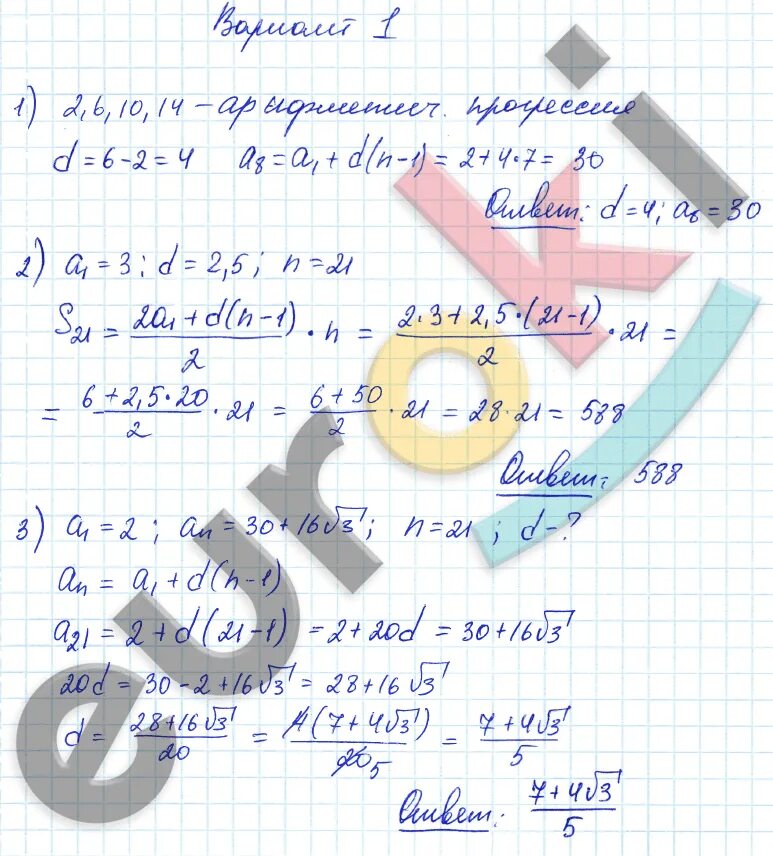 Вариант 1
1) 2, 6, 10, 14 – арифметич. прогрессия
d = 6 - 2 = 4 a₈ = a₁ + d(n-1) = 2 + 4·7 = 30
Ответ: d = 4; a₈ = 30
2) a₁ = 3; d = 2,5; n = 21
S₂₁ = (2a₁ + d(n-1))/2 · n = (2·3 + 2,5·(21-1))/2 · 21 =
= (6 + 2,5·20)/2 · 21 = (6 + 50)/2 · 21 = 28·21 = 588
Ответ: 588
3) a₁ = 2; aₙ = 30 + 16√3; n = 21; d - ?
aₙ = a₁ + d(n-1)
a₂₁ = 2 + d(21-1) = 2 + 20d = 30 + 16√3
20d = 30 - 2 + 16√3 = 28 + 16√3
d = (28 + 16√3)/20 = 4(7 + 4√3)/20 5 = (7 + 4√3)/5
Ответ: (7 + 4√3)/5
euroki